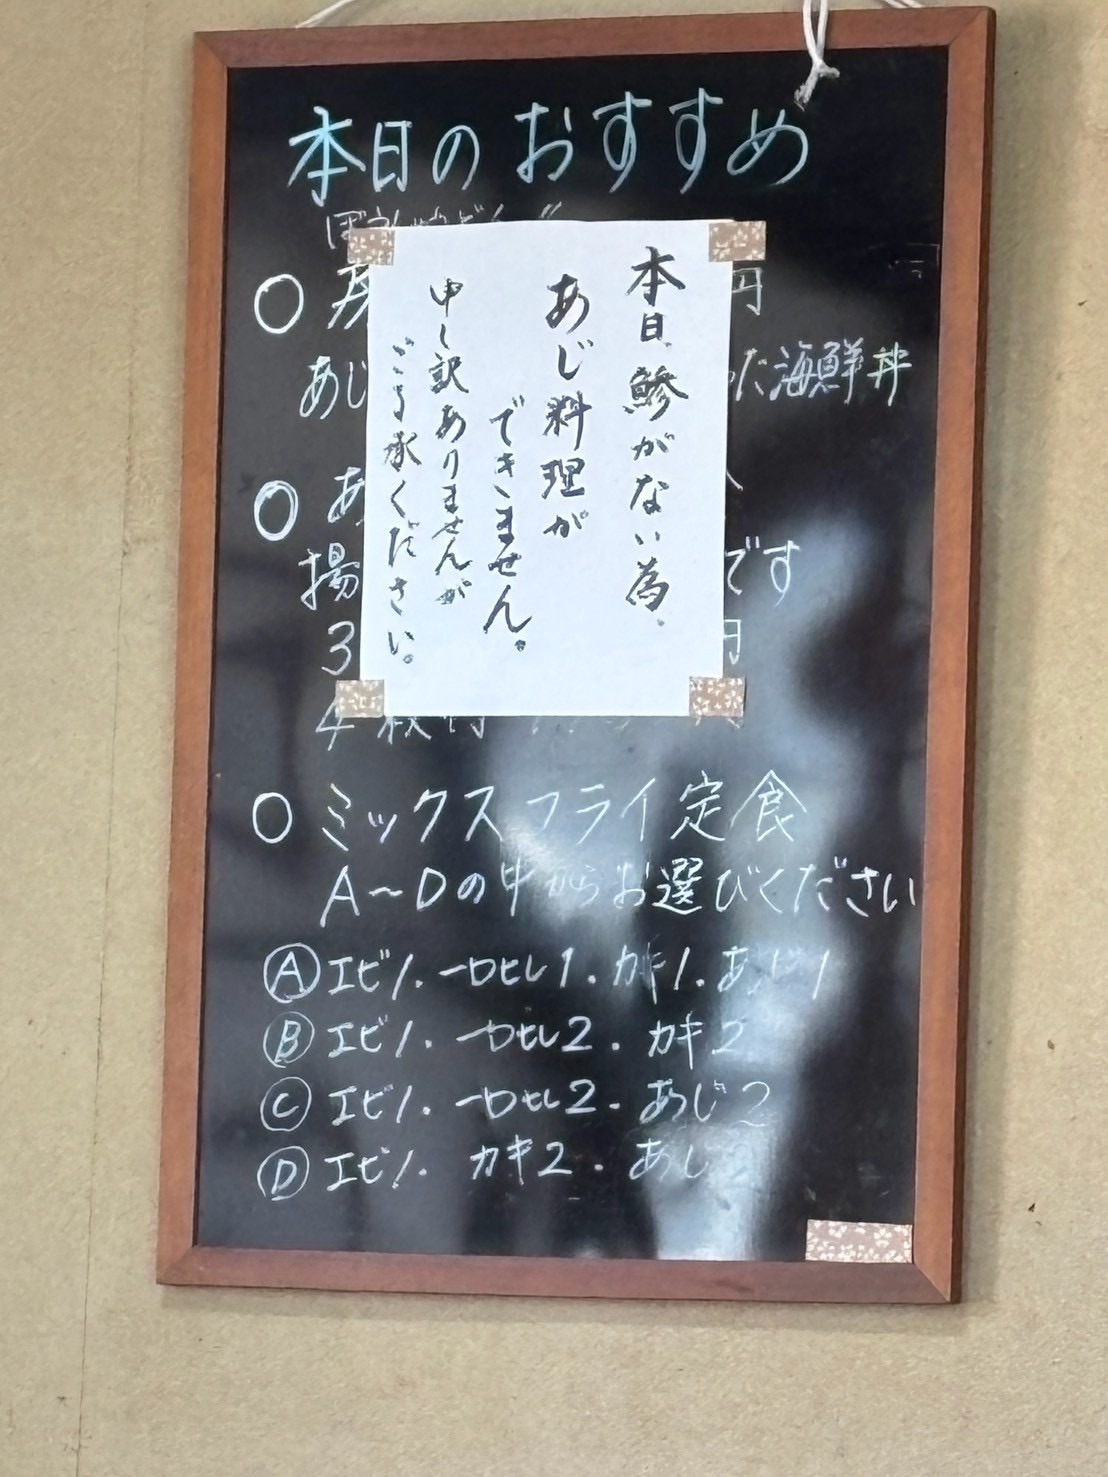 本日のおすすめ
本日鯵がない為、
あじ料理が
できません。
申し訳ありませんが
ご了承ください。
円
あじ
海鮮丼
あ
揚
です
3
円
4
○ ミックスフライ定食
A~Dの中からお選びください
Ⓐ エビ1. 一口ヒレ1. カキ1. あじ1
Ⓑ エビ1. 一口ヒレ2. カキ2
Ⓒ エビ1. 一口ヒレ2. あじ2
Ⓓ エビ1. カキ2. あじ